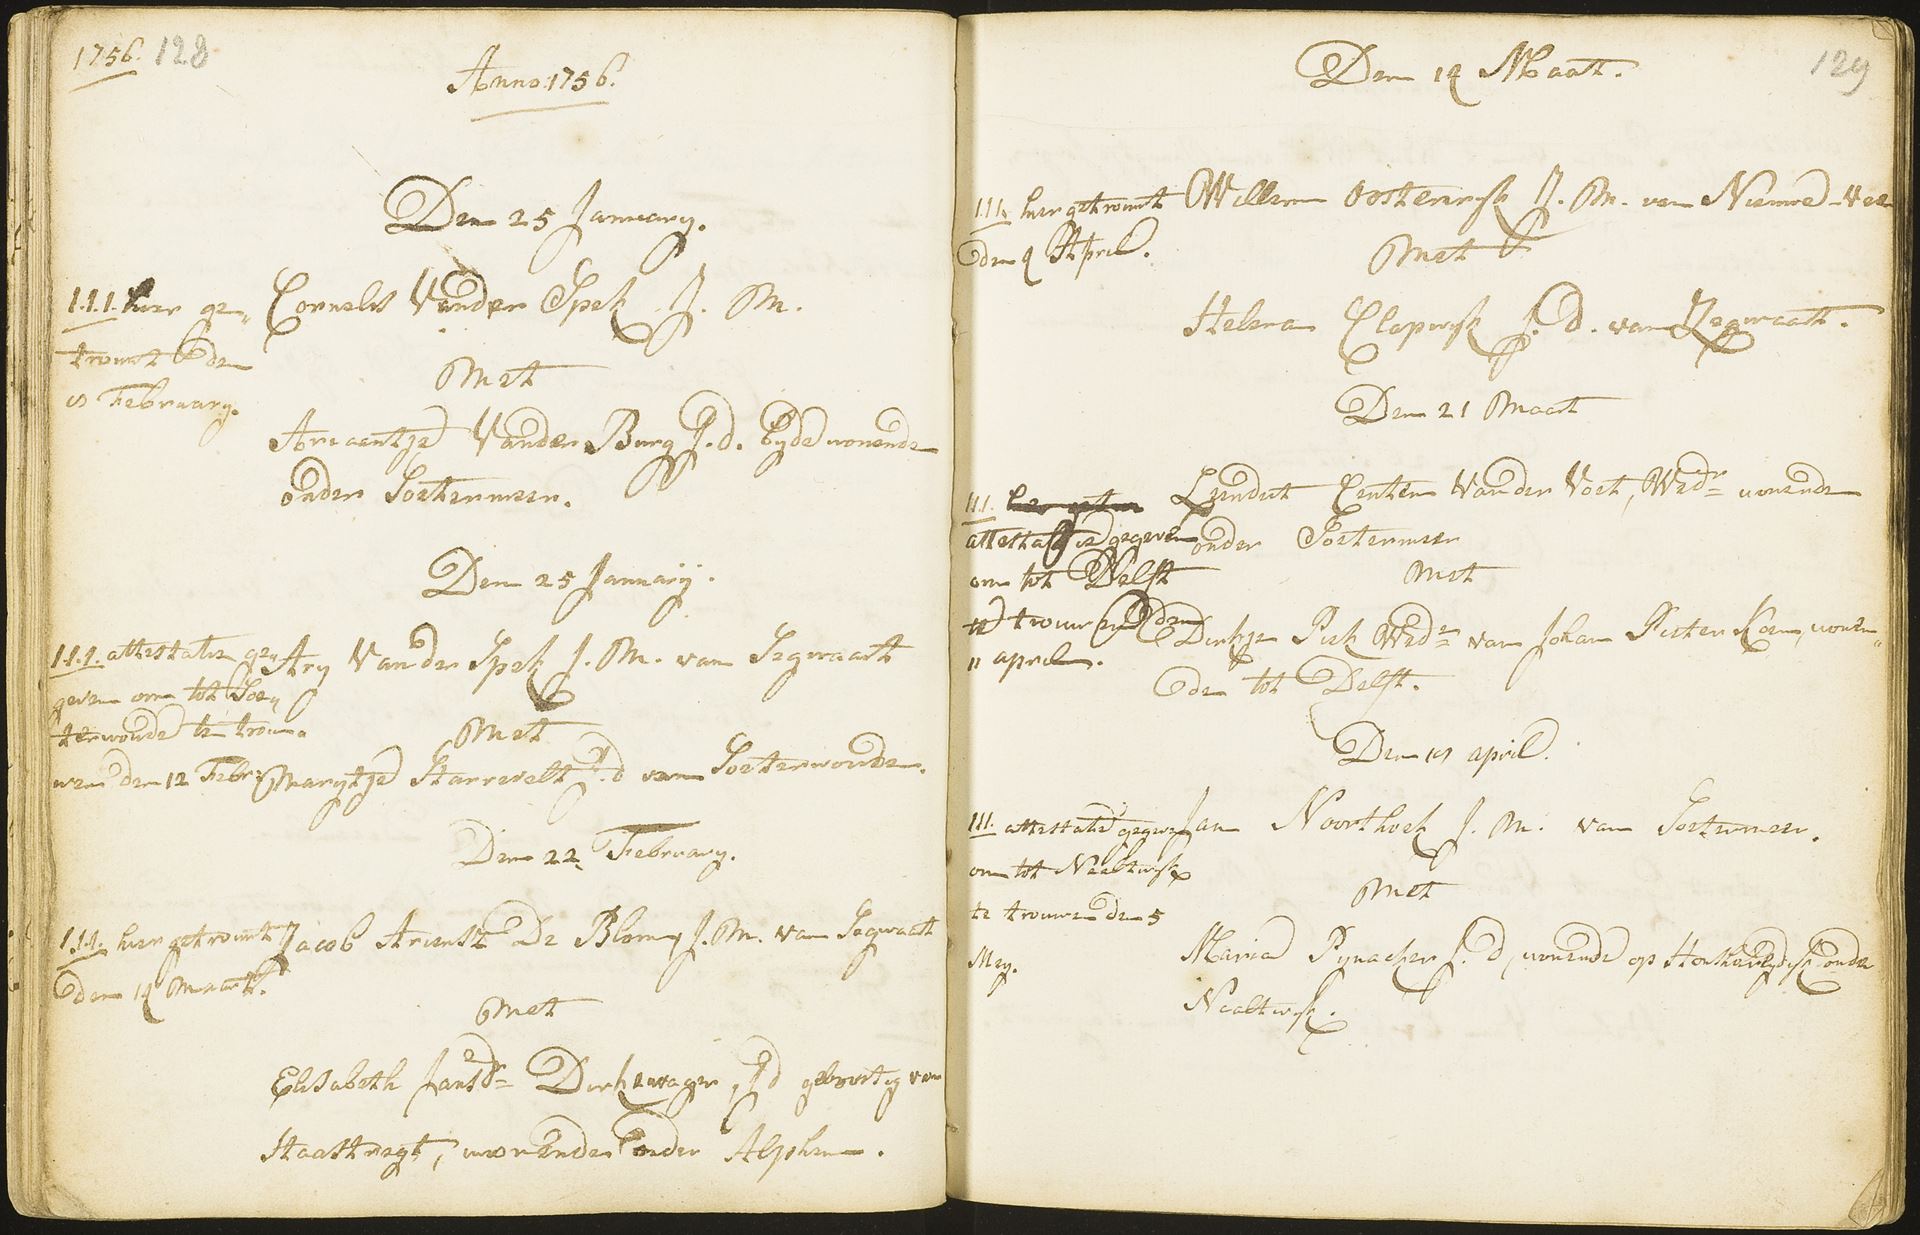 1756. 128
Anno: 1756.
Den 25 January.
1.1.1. hier ge„
trouwt den
Februarij.
Cornelis Vander Spek J. M.
Met
Ariaentje Vander Burg J. d. beyde wonende
onder Soetermeer.
Den 25 January.
1.1.1. attestatie ge„
geven om tot Soe„
terwoude te trou„
wen den 12 Febr.
Ary Vander Spek J. M. van Segwaart
Met
Marijtje Starrevelt J. d van Soeterwoude.
Den 22 February.
1.1.1. hier getrouwt
den 14 Maart.
Jacob Ariensz De Blom, J. M. van Segwaart
Met
Elisabeth Jansdr Dirkzwager, J d geboortig van
Haastregt, wonende onder Alphen.
129
Den 14 Maart.
1.1.1. hier getrouwt
den 4 April.
Willem Oostenrijk J. M. van Nieuwe-Veen
Met
Helena Clapwijk J. d. van Zegwaart.
Den 21 Maart
1.1.1.
attestatie gegeven
om tot Delft
te trouwen den
11 april.
Leendert Centen Vander Voort, Wedr wonende
onder Soetermeer
Met
Dirkje Piek Wede van Johan Pieter Koen, wonen„
de tot Delft.
Den april.
111. attestatie gegeven
om tot Naaltwijk
te trouwen den 5
Mey.
Jan Noorthoek J. M. van Soetermeer.
Met
Maria Pynacker J. d, wonende op Honsholredijk onder
Naaltwijk.